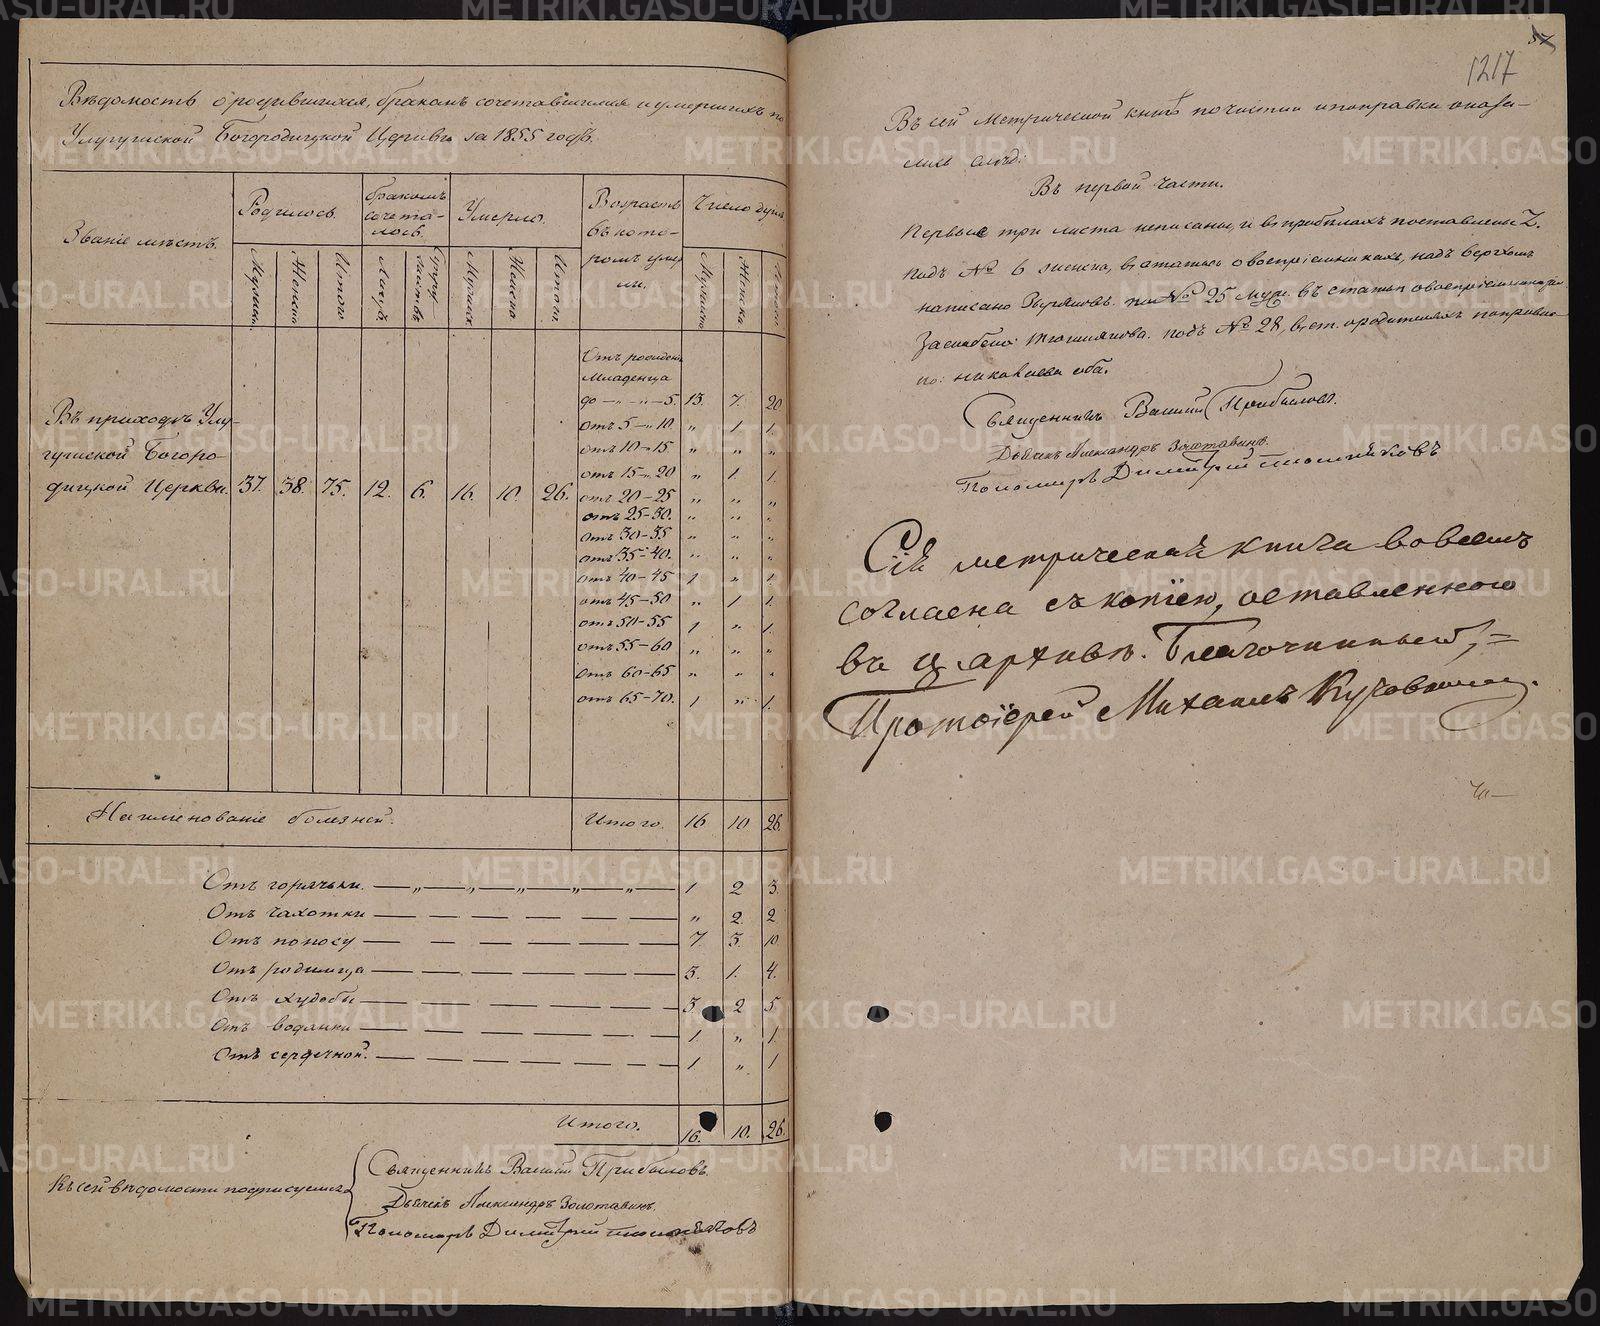 Вѣдомость о родившихся, бракомъ сочетавшихся и умершихъ по
Улугушской Богородицкой Церкви за 1855 годъ.
Званіе мѣстъ.
Родилось.
бракомъ
сочета-
лось.
Умерло.
Возрастъ
въ кото-
ромъ умер
ли.
Число душъ
Мужеск.
Женска
Итого
Мужеск.
Женска
Итого
Мужеска
Женска
Въ приходѣ Улу-
гушской Богоро
дицкой Церкви. 37. 38. 75. 12. 6. 16. 10. 26.
Отъ рожденія
Младенца
до — „ — „ — 5. 13. 7. 20
отъ 5 — „ 10. „ 1 1.
отъ 10 — 15 „ „ „
отъ 15 — 20 „ 1. 1.
отъ 20 — 25 „ „ „
отъ 25-30. „ „ „
отъ 30-35 „ „ „
отъ 35-40. „ „ „
отъ 40-45 1 „ 1.
отъ 45-50 „ 1 1.
отъ 50-55 1 „ 1.
отъ 55-60 „ „ „
отъ 60-65 „ „ „
отъ 65-70. 1 „ 1.
Наименованіе болезней. Итого. 16 10 26.
Отъ горячьки. — „ — „ — „ — „ — „ — 1 2 3.
Отъ чахотки — — — — — — „ 2. 2
Отъ поносу — — — — — — 7. 3. 10
Отъ родимца — — — — — — 3. 1. 4.
Отъ худобы — — — — — — 3 2 5
Отъ водянки — — — — — — 1 „ 1.
Отъ сердечной. — — — — — — 1 „ 1
Итого. 16. 10. 26
Къ сей вѣдомости подписуемся
Священникъ Василій Прибыловъ.
Дьячекъ Александръ Золотавинъ.
Пономарь Димитрій
57
1217
Въ сей Метрической книгѣ по чистки и поправки оказа-
лись слѣд:
Въ первой части.
Первые три листа неписаны, и въ пробѣлахъ поставлены Z.
подъ № 6 въ статьѣ о воспріемникахъ, надъ верхомъ
написано № 25 муж. въ статьи о воспріемникахъ
подъ № 28, въ ст. о родителяхъ поправле-
но: оба.
Священникъ Василій Прибыловъ.
Дьячекъ Александръ Золотавинъ.
Пономарь Димитрій
Сія метрическая книга во всемъ
согласна съ копіею, оставленною
въ ц. архивѣ. Благочинный, =
Протоіерей Михаилъ